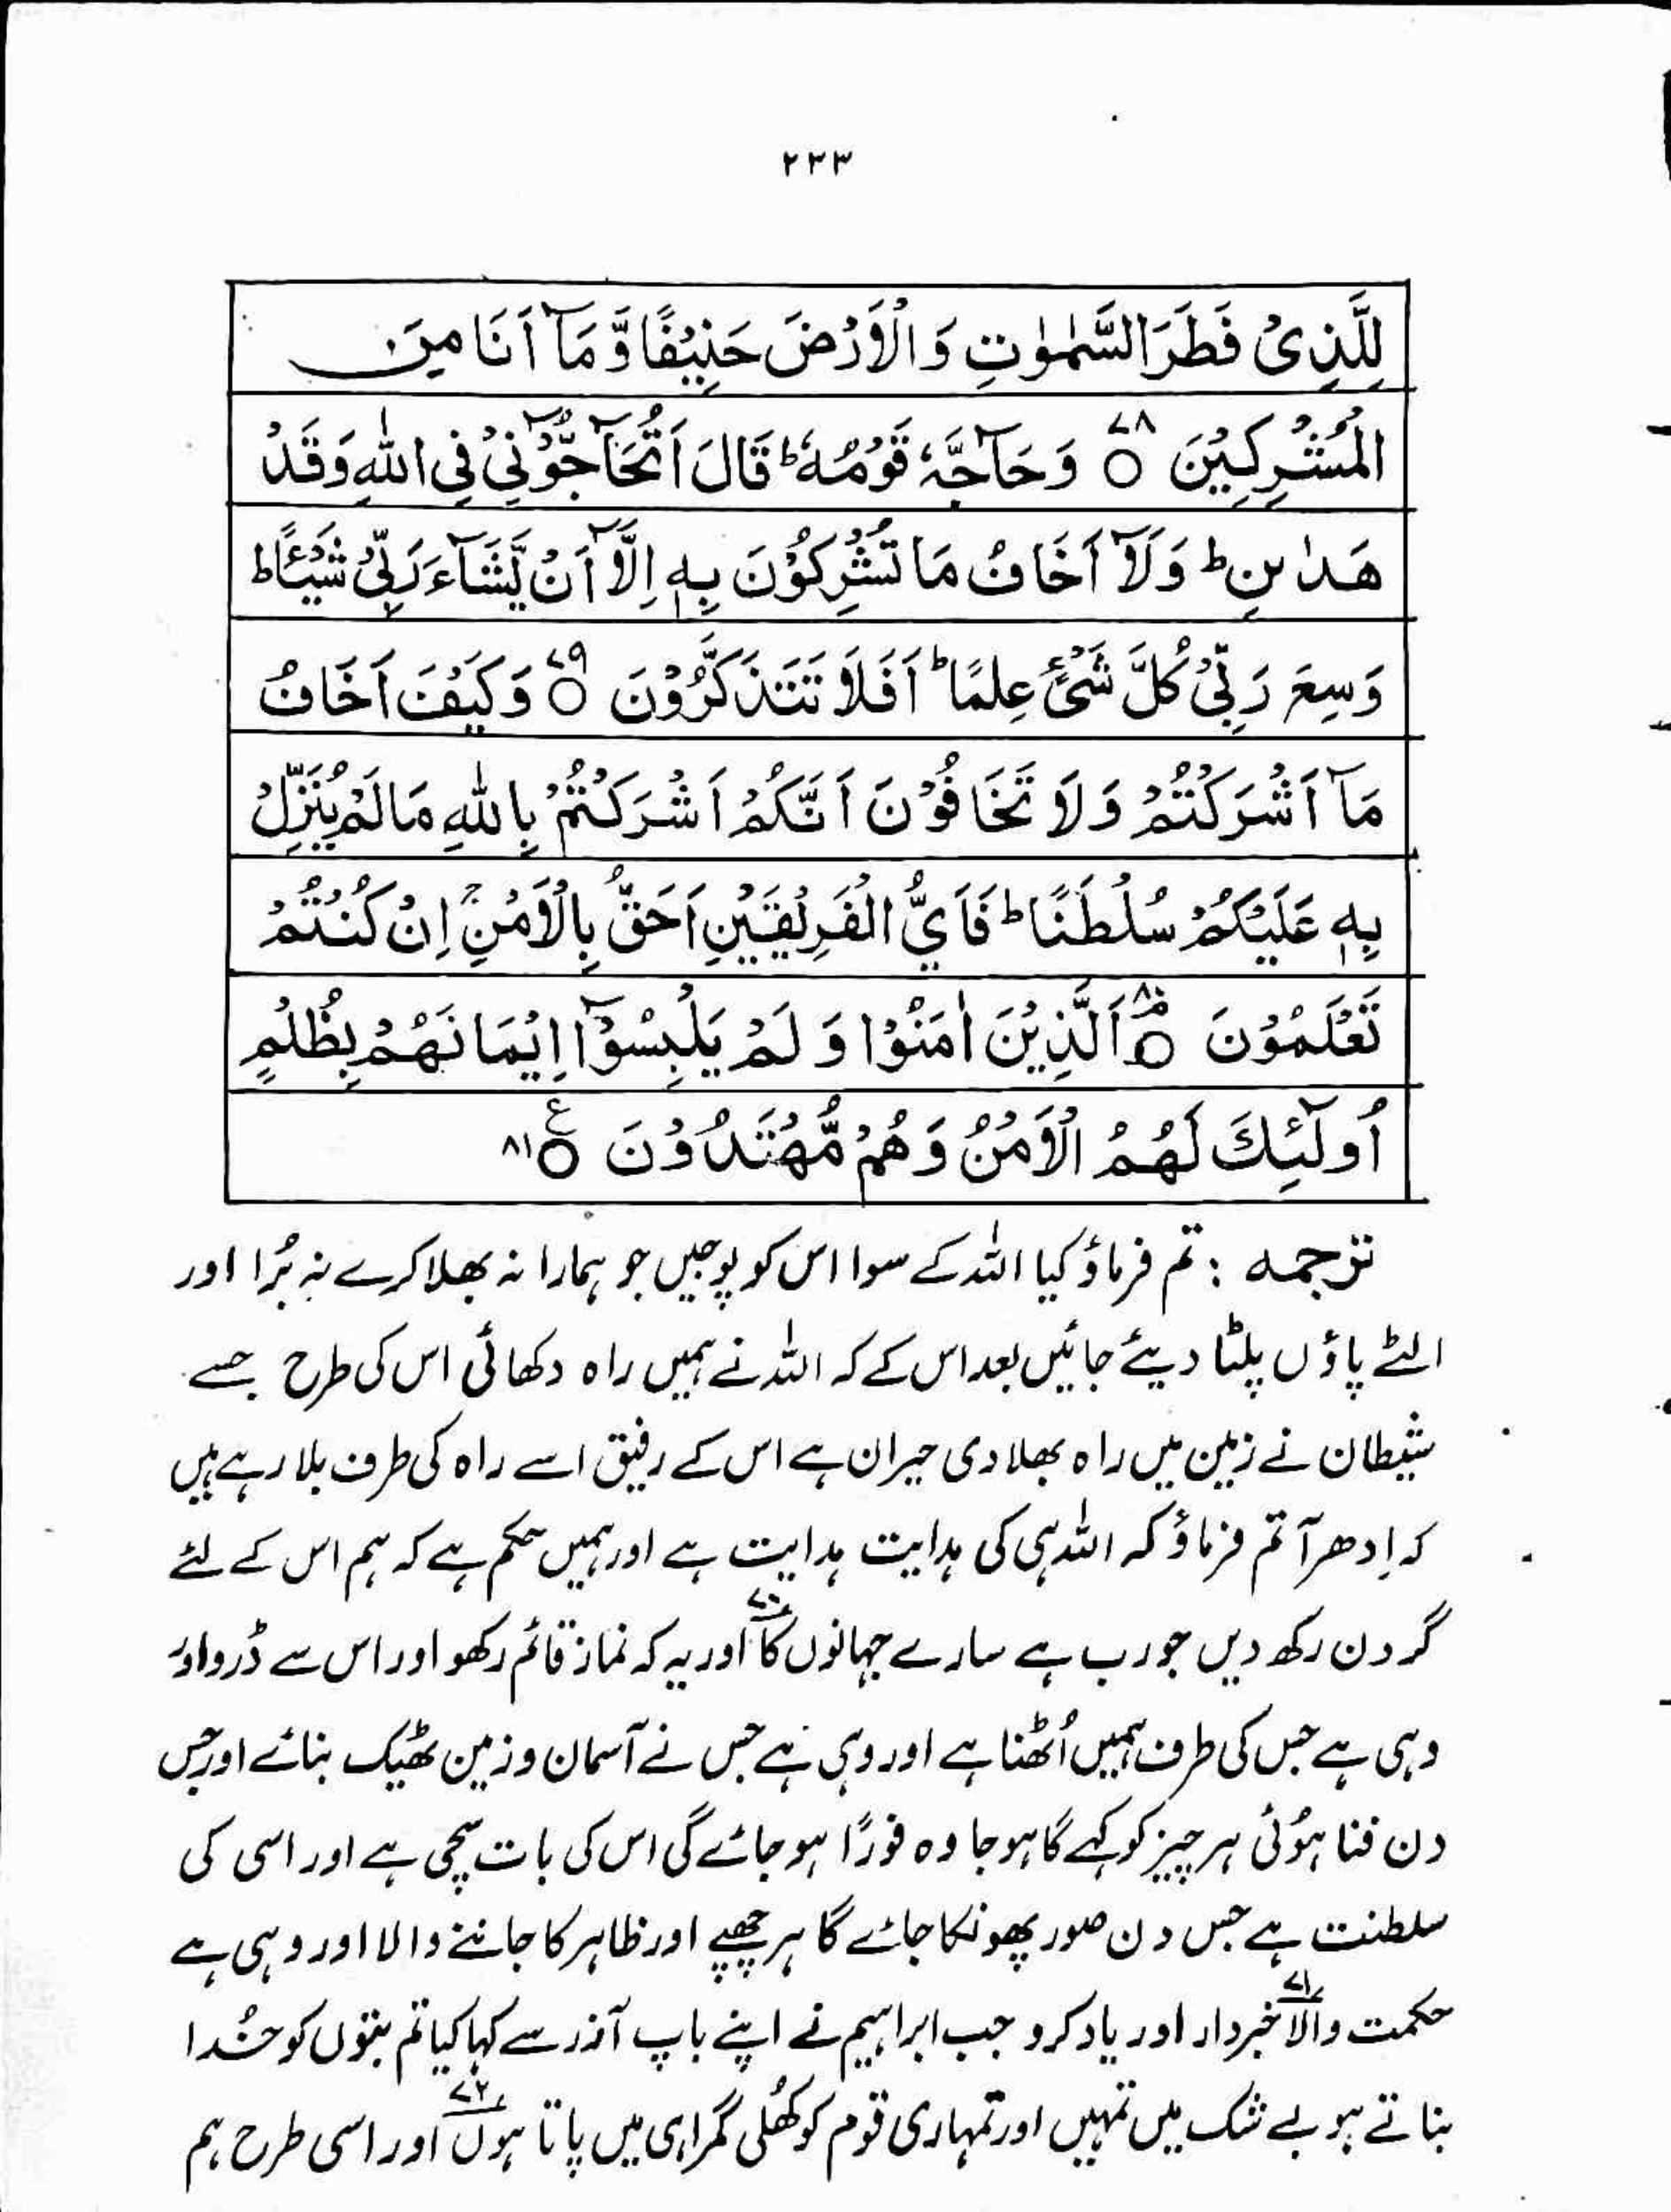 ۲۳۳
لِلَّذِیْ فَطَرَ السَّمٰوٰتِ وَ الْاَرْضَ حَنِیْفًا وَّ مَآ اَنَا مِنَ
الْمُشْرِكِیْنَ ۷۸ وَ حَآجَّہٗ قَوْمُہٗ ؕ قَالَ اَتُحَآجُّوْٓنِّیْ فِی اللّٰهِ وَ قَدْ
هَدٰىنِ ؕ وَ لَآ اَخَافُ مَا تُشْرِكُوْنَ بِهٖ اِلَّآ اَنْ یَّشَآءَ رَبِّیْ شَیْـًٔا ؕ
وَسِعَ رَبِّیْ كُلَّ شَیْءٍ عِلْمًا ؕ اَفَلَا تَتَذَكَّرُوْنَ ۷۹ وَ كَیْفَ اَخَافُ
مَآ اَشْرَكْتُمْ وَ لَا تَخَافُوْنَ اَنَّكُمْ اَشْرَكْتُمْ بِاللّٰهِ مَا لَمْ یُنَزِّلْ
بِهٖ عَلَیْكُمْ سُلْطٰنًا ؕ فَاَیُّ الْفَرِیْقَیْنِ اَحَقُّ بِالْاَمْنِ ۚ اِنْ كُنْتُمْ
تَعْلَمُوْنَ ۸۰ اَلَّذِیْنَ اٰمَنُوْا وَ لَمْ یَلْبِسُوْٓا اِیْمَانَهُمْ بِظُلْمٍ
اُولٰٓئِكَ لَهُمُ الْاَمْنُ وَ هُمْ مُّهْتَدُوْنَ ع ۸۱
ترجمہ : تم فرماؤ کیا اللہ کے سوا اس کو پوجیں جو ہمارا نہ بھلا کرے نہ بُرا اور
الٹے پاؤں پلٹا دیئے جائیں بعد اس کے کہ اللہ نے ہمیں راہ دکھائی اس کی طرح جسے
شیطان نے زمین میں راہ بھلا دی حیران ہے اس کے رفیق اسے راہ کی طرف بلا رہے ہیں
کہ اِدھر آ تم فرماؤ کہ اللہ ہی کی ہدایت ہدایت ہے اور ہمیں حکم ہے کہ ہم اس کے لئے
گردن رکھ دیں جو رب ہے سارے جہانوں کا ۷۰ اور یہ کہ نماز قائم رکھو اور اس سے ڈرو اور
وہی ہے جس کی طرف ہمیں اُٹھنا ہے اور وہی ہے جس نے آسمان و زمین ٹھیک بنائے اور جس
دن فنا ہوُئی ہر چیز کو کہے گا ہو جا وہ فورًا ہو جائے گی اس کی بات سچی ہے اور اسی کی
سلطنت ہے جس دن صور پھونکا جائے گا ہر چھپے اور ظاہر کا جاننے والا اور وہی ہے
حکمت والا ۷۱ خبردار اور یاد کرو جب ابراہیم نے اپنے باپ آذر سے کہا کیا تم بتوں کو خُدا
بناتے ہو بے شک میں تمہیں اور تمہاری قوم کو کھُلی گمراہی میں پاتا ہوں ۷۲ اور اسی طرح ہم